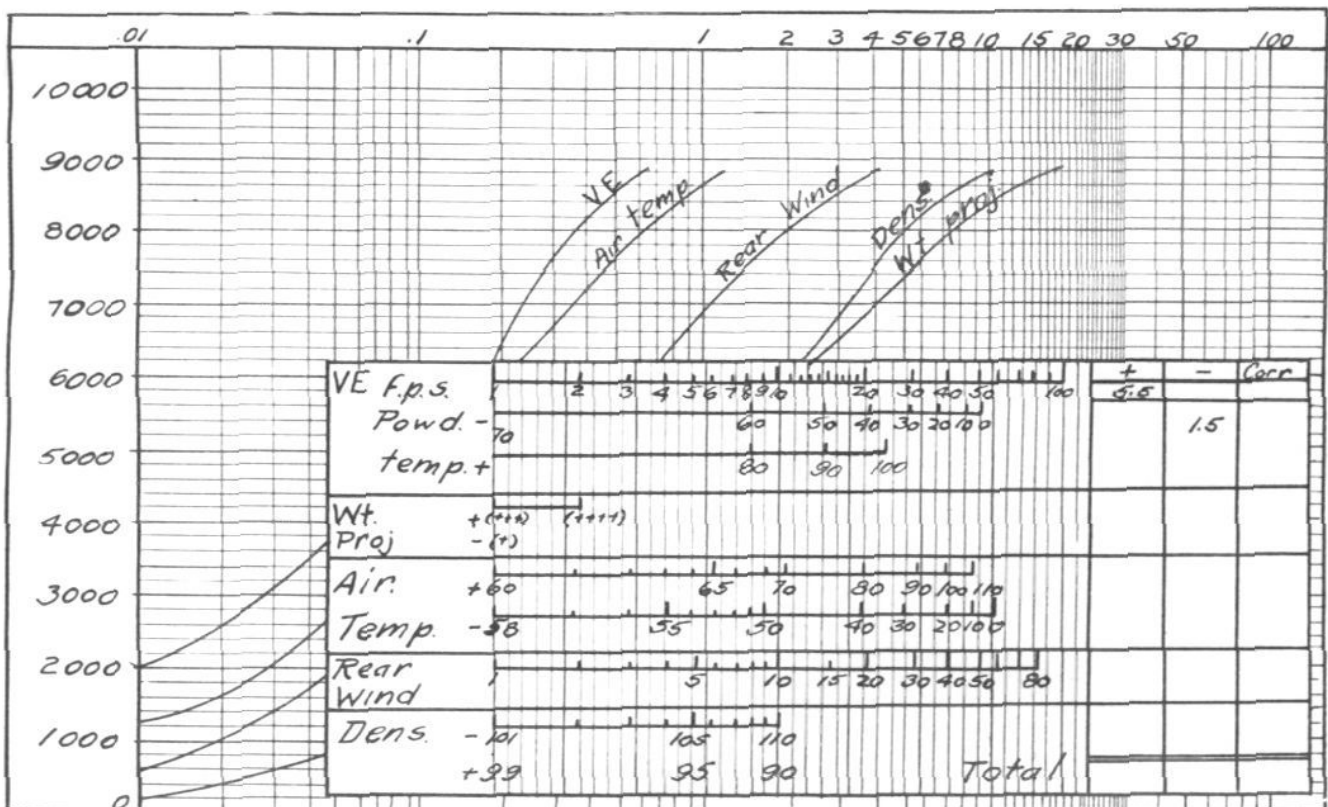 .01 .1 1 2 3 4 5 6 7 8 10 15 20 30 50 100
10000
9000
8000
7000
6000
5000
4000
3000
2000
1000
0
VE
Air temp
Rear Wind
Dens.
Wt proj.
VE f.p.s. 1 2 3 4 5 6 7 8 9 10 20 30 40 50 100
+ - Corr
5.5
Powd. - 70 60 50 40 30 20 10 0
1.5
temp. + 80 90 100
Wt. + (+++) (++++)
Proj - (+)
Air. +60 65 70 80 90 100 110
Temp. -58 55 50 40 30 20 10 0
Rear 1 5 10 15 20 30 40 50 80
Wind
Dens. -101 105 110
+99 95 90 Total